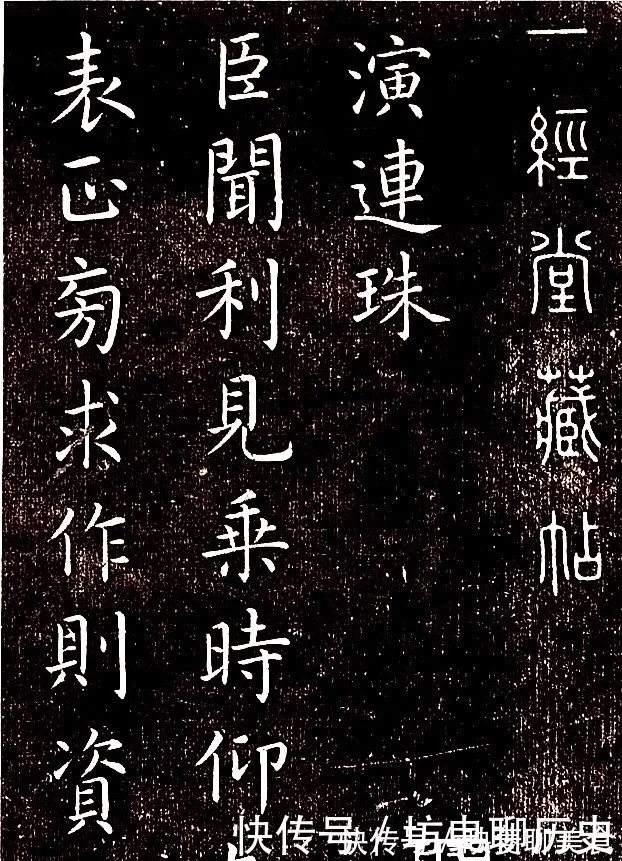 一經堂藏帖
演連珠
臣聞利見乗時仰
表正旁求作則資
快传号 / 聊历史
快传号